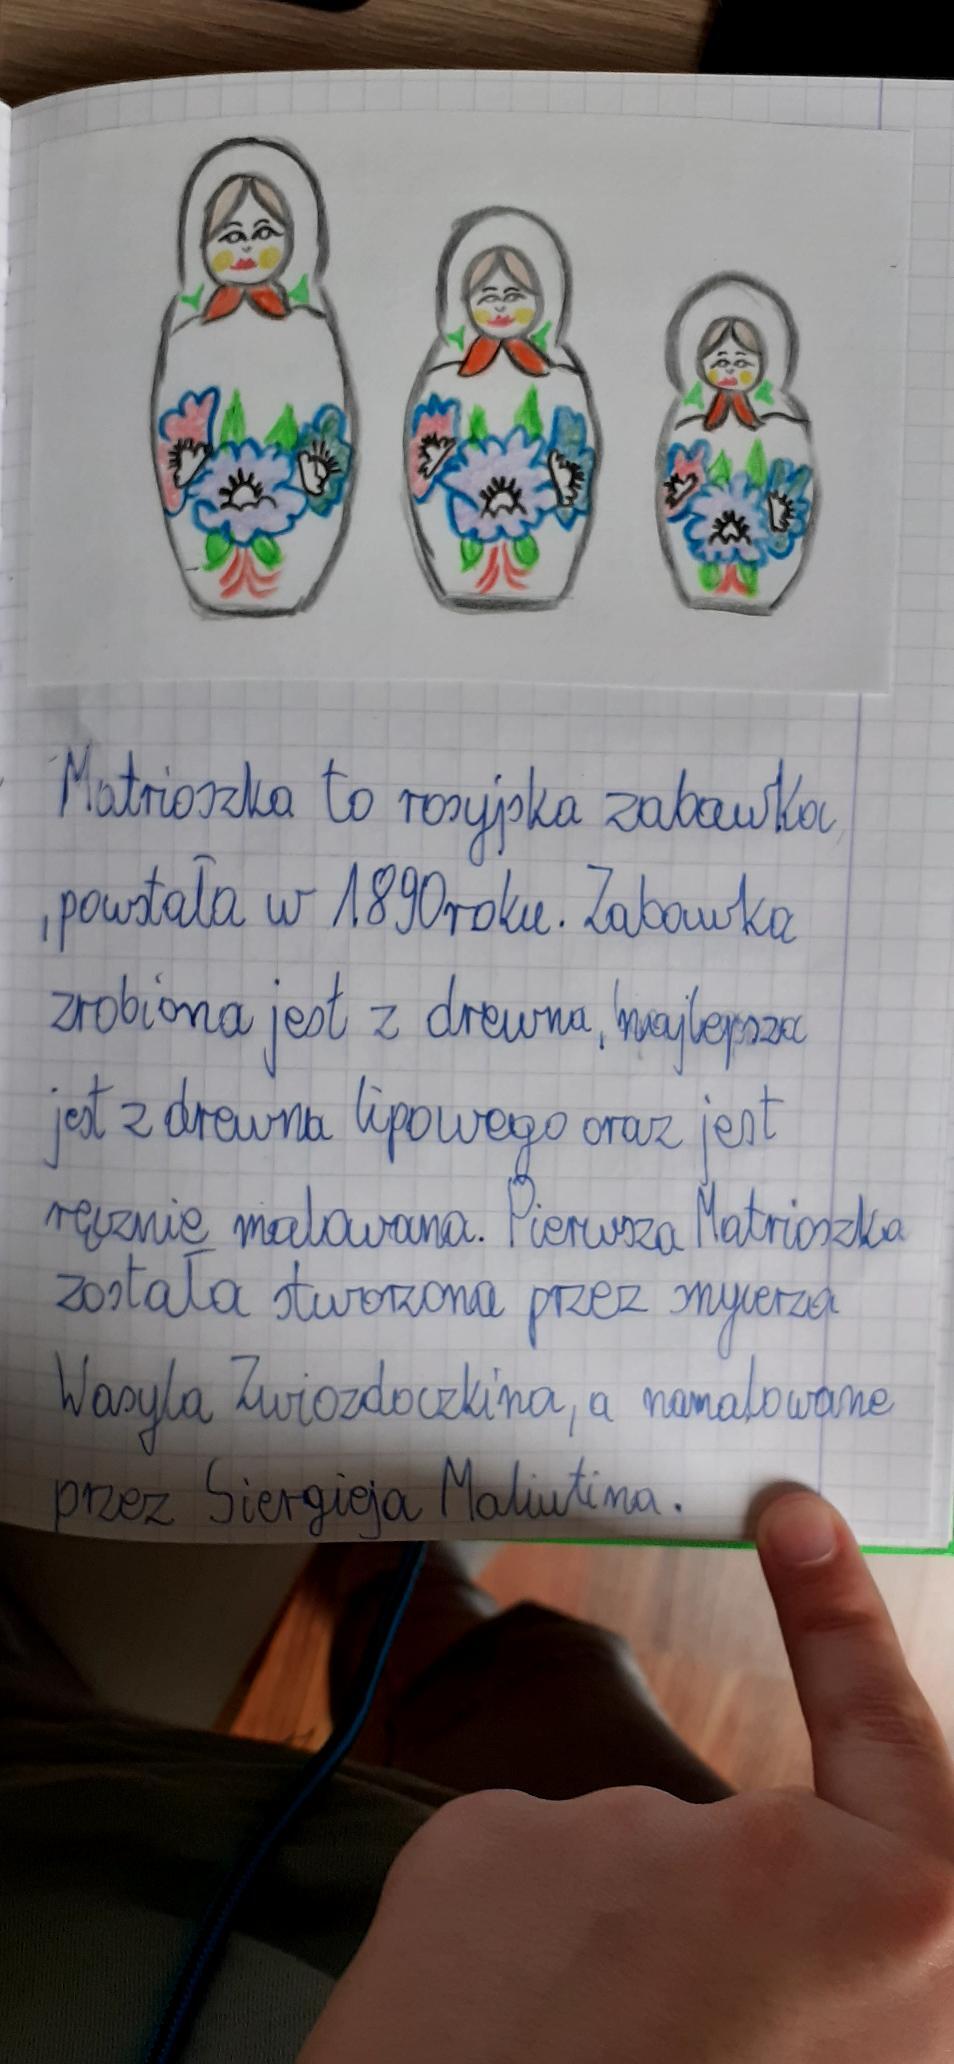 Matrioszka to rosyjska zabawka
,powstała w 1890roku. Zabawka
zrobiona jest z drewna, najlepsza
jest z drewna lipowego oraz jest
ręcznie malowana. Pierwsza Matrioszka
została stworzona przez snycerza
Wasyla Zwiozdoczkina, a namalowane
przez Siergieja Maliutina.